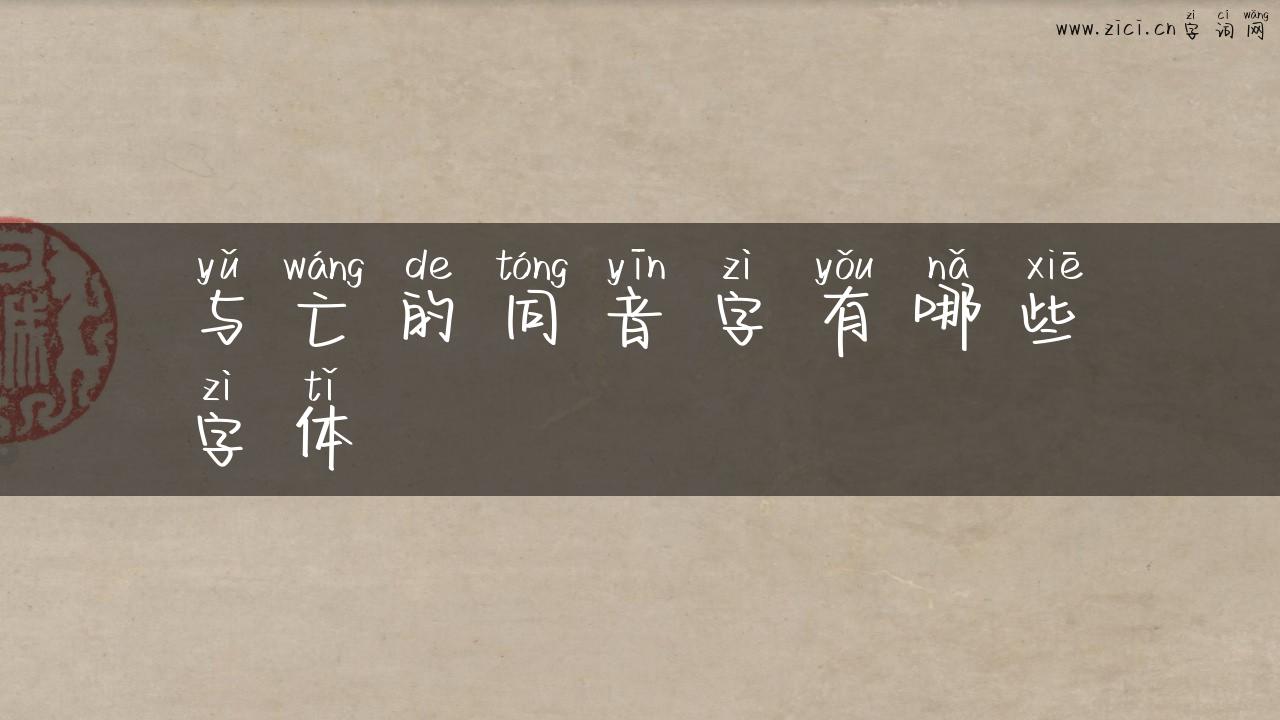 zì cí wǎng
www.zici.cn 字词网
yǔ wáng de tóng yīn zì yǒu nǎ xiē
与亡的同音字有哪些
zì tǐ
字体